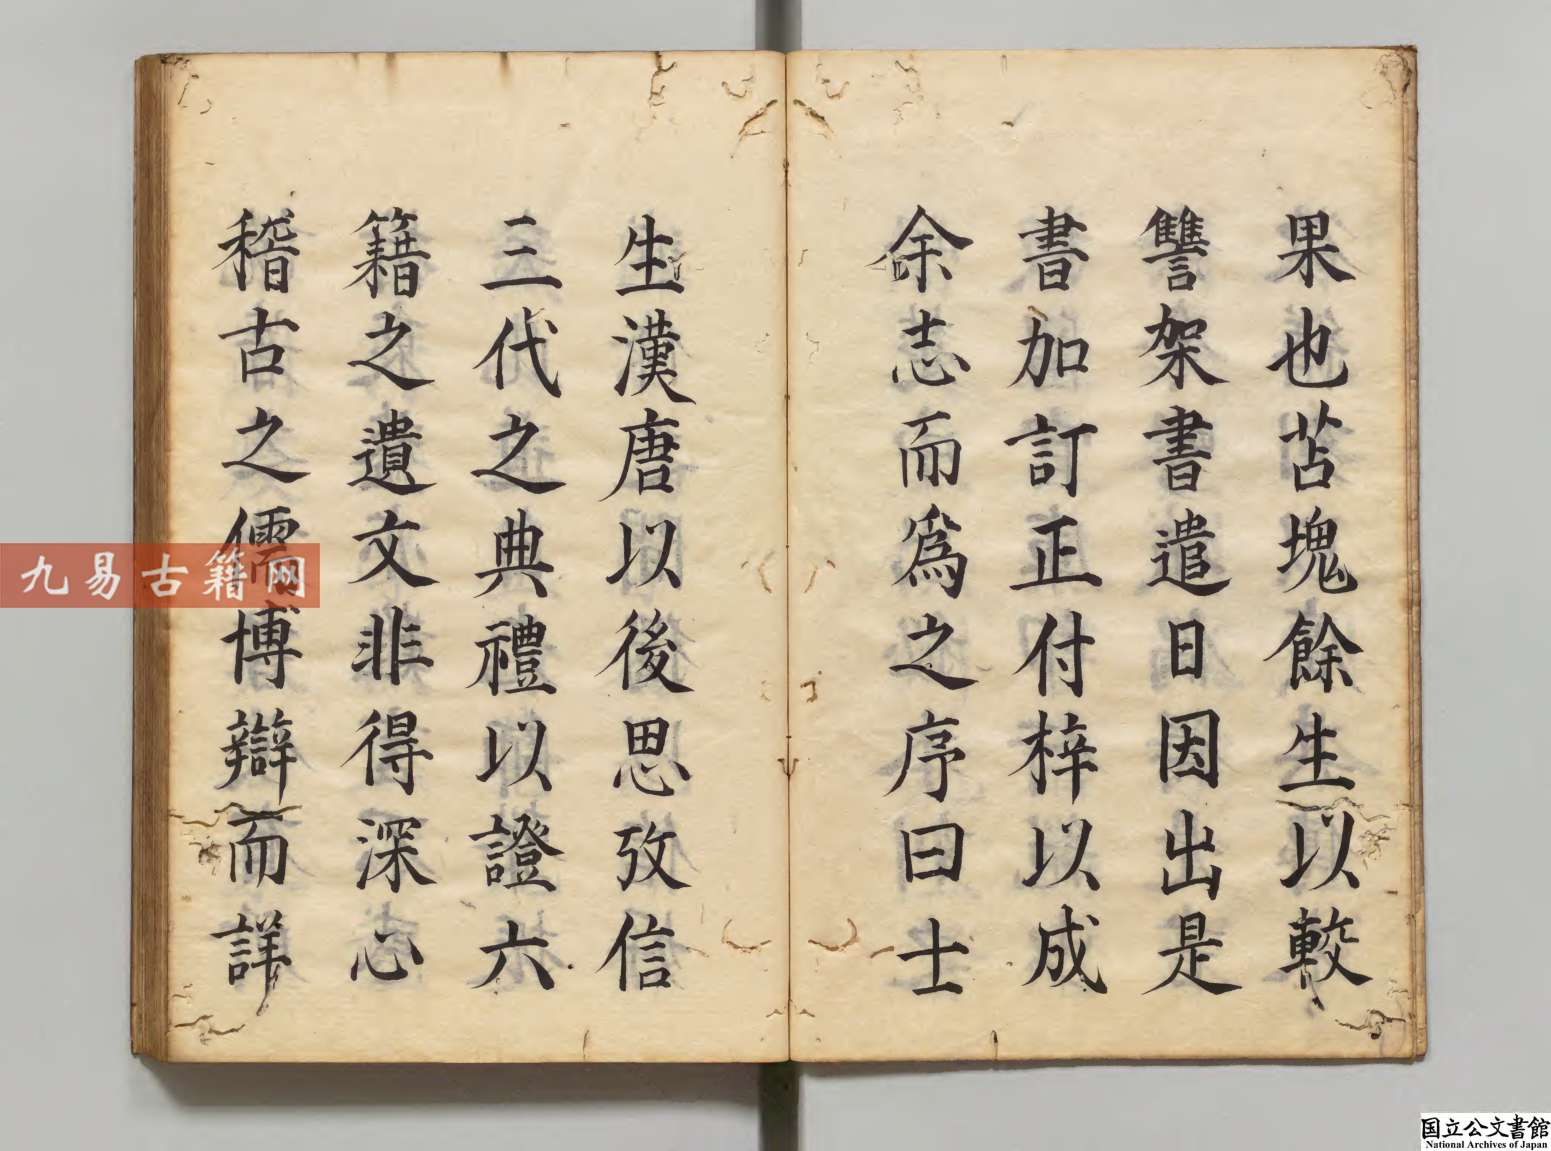 果也苫塊餘生以較
讐架書遣日因出是
書加訂正付梓以成
余志而爲之序曰士
生漢唐以後思攷信
三代之典禮以證六
籍之遺文非得深心
稽古之儒博辯而詳
九易古籍网
国立公文書館
National Archives of Japan